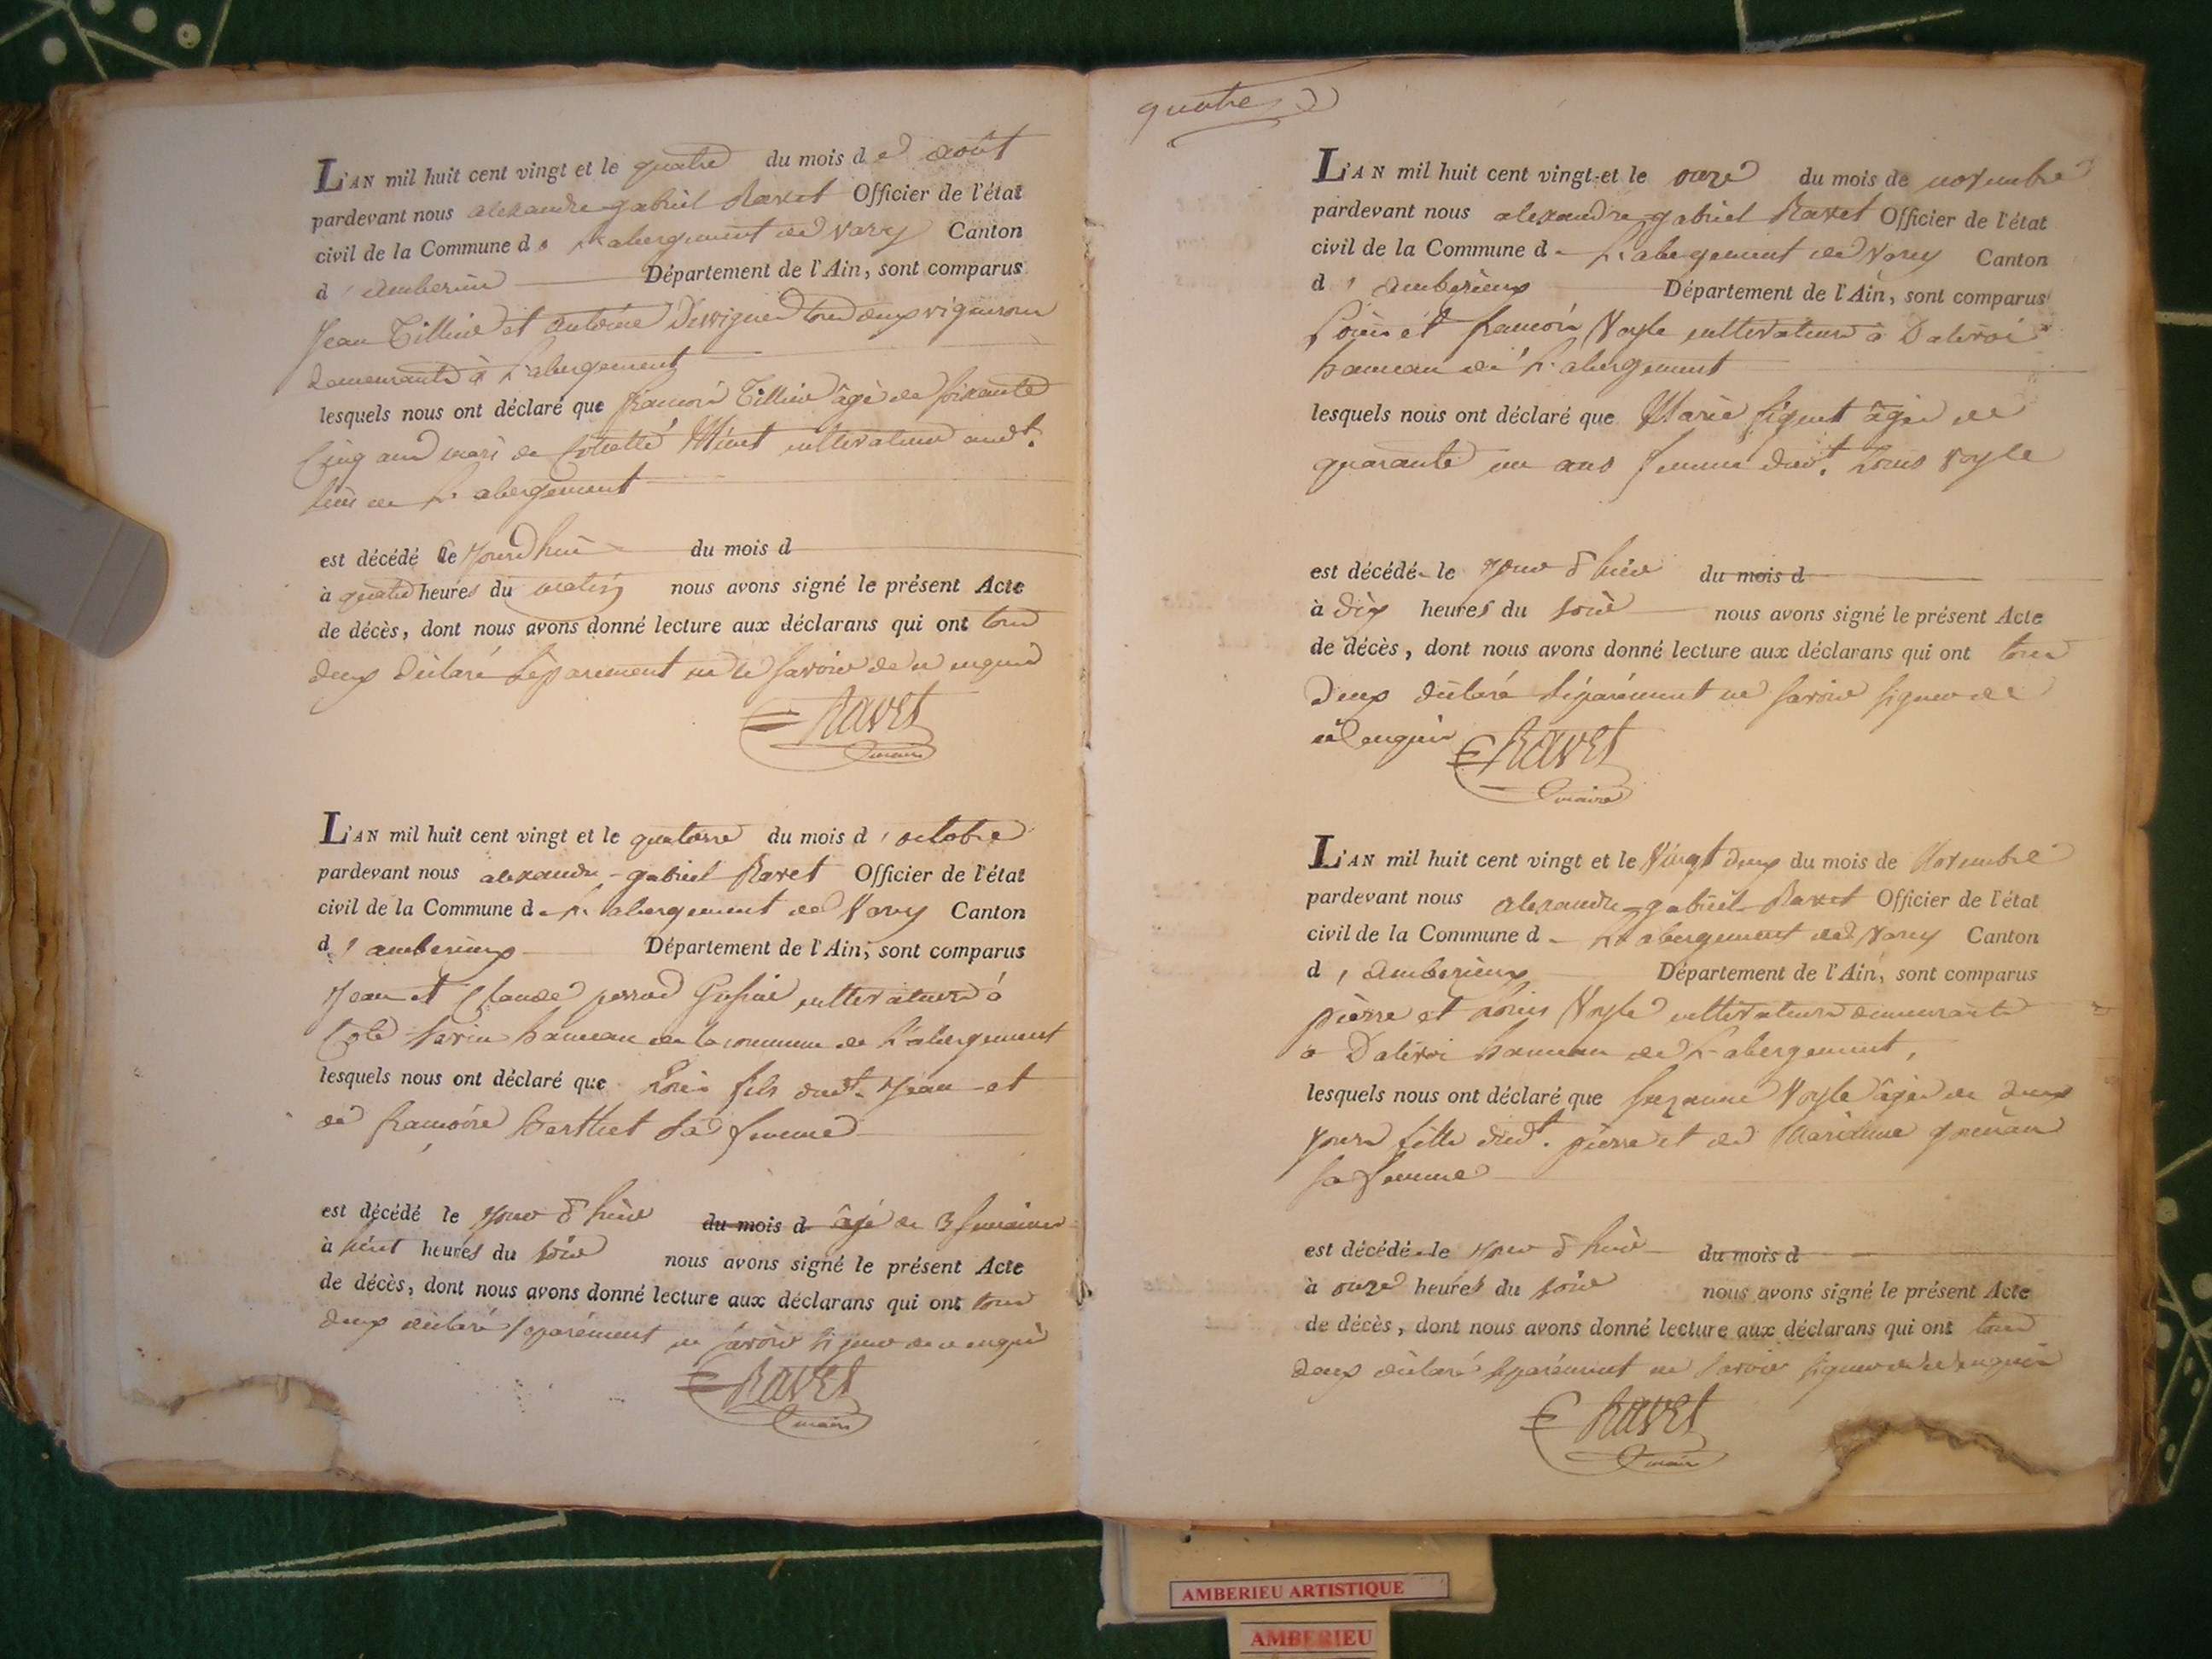 L'AN mil huit cent vingt et le quatre du mois de août
pardevant nous alexandre-gabriel Ravet Officier de l'état
civil de la Commune de L'abergement de Varey Canton
d'amberieu Département de l'Ain, sont comparus
Jean Tillier et antoine tous deux vignerons
demeurants à L'abergement
lesquels nous ont déclaré que françois Tillier âgé de soixante
Cinq ans mari de cultivateur audt.
lieu de L'abergement
est décédé ce jourd'hui du mois d
à quatre heures du matin nous avons signé le présent Acte
de décès, dont nous avons donné lecture aux déclarans qui ont tous
deux déclaré séparement ne le savoir de ce enquis
Ravet
maire
L'AN mil huit cent vingt et le quatorse du mois d'octobre
pardevant nous alexandre-gabriel Ravet Officier de l'état
civil de la Commune de L'abergement de Varey Canton
d'amberieux Département de l'Ain, sont comparus
Jean et Claude perrod cultivateurs à
Cote Savin hameau de la commune de L'abergement
lesquels nous ont déclaré que Louis fils dudt. Jean et
de françoise Berthet sa femme
est décédé le jour d'hier du mois d âgé de 3 semaines
à huit heures du soir nous avons signé le présent Acte
de décès, dont nous avons donné lecture aux déclarans qui ont tous
deux déclaré séparément ne savoir signer de ce enquis
Ravet
maire
quatre
L'AN mil huit cent vingt et le onze du mois de novembre
pardevant nous alexandre-gabriel Ravet Officier de l'état
civil de la Commune de L'abergement de Varey Canton
d'amberieux Département de l'Ain, sont comparus
Louis et francois Voyle cultivateurs à Dalivoi
hameau de L'abergement
lesquels nous ont déclaré que Marie figuet âgée de
quarante un ans femme dudt. Louis Voyle
est décédée le jour d'hier du mois d
à dix heures du soir nous avons signé le présent Acte
de décès, dont nous avons donné lecture aux déclarans qui ont tous
deux déclaré séparément ne savoir signer de
ce enquis Ravet
maire
L'AN mil huit cent vingt et le Vingt deux du mois de Novembre
pardevant nous alexandre-gabriel Ravet Officier de l'état
civil de la Commune de L'abergement de Varey Canton
d'amberieux Département de l'Ain, sont comparus
pierre et Louis Voyle cultivateurs demeurants
à Dalivoi hameau de L'abergement,
lesquels nous ont déclaré que suzanne Voyle âgée de deux
jours fille dudt. pierre et de Marianne
sa femme
est décédée le jour d'hier du mois d
à onze heures du soir nous avons signé le présent Acte
de décès, dont nous avons donné lecture aux déclarans qui ont tous
deux déclaré séparément ne savoir signer de ce enquis
Ravet
maire
AMBERIEU ARTISTIQUE
AMBERIEU